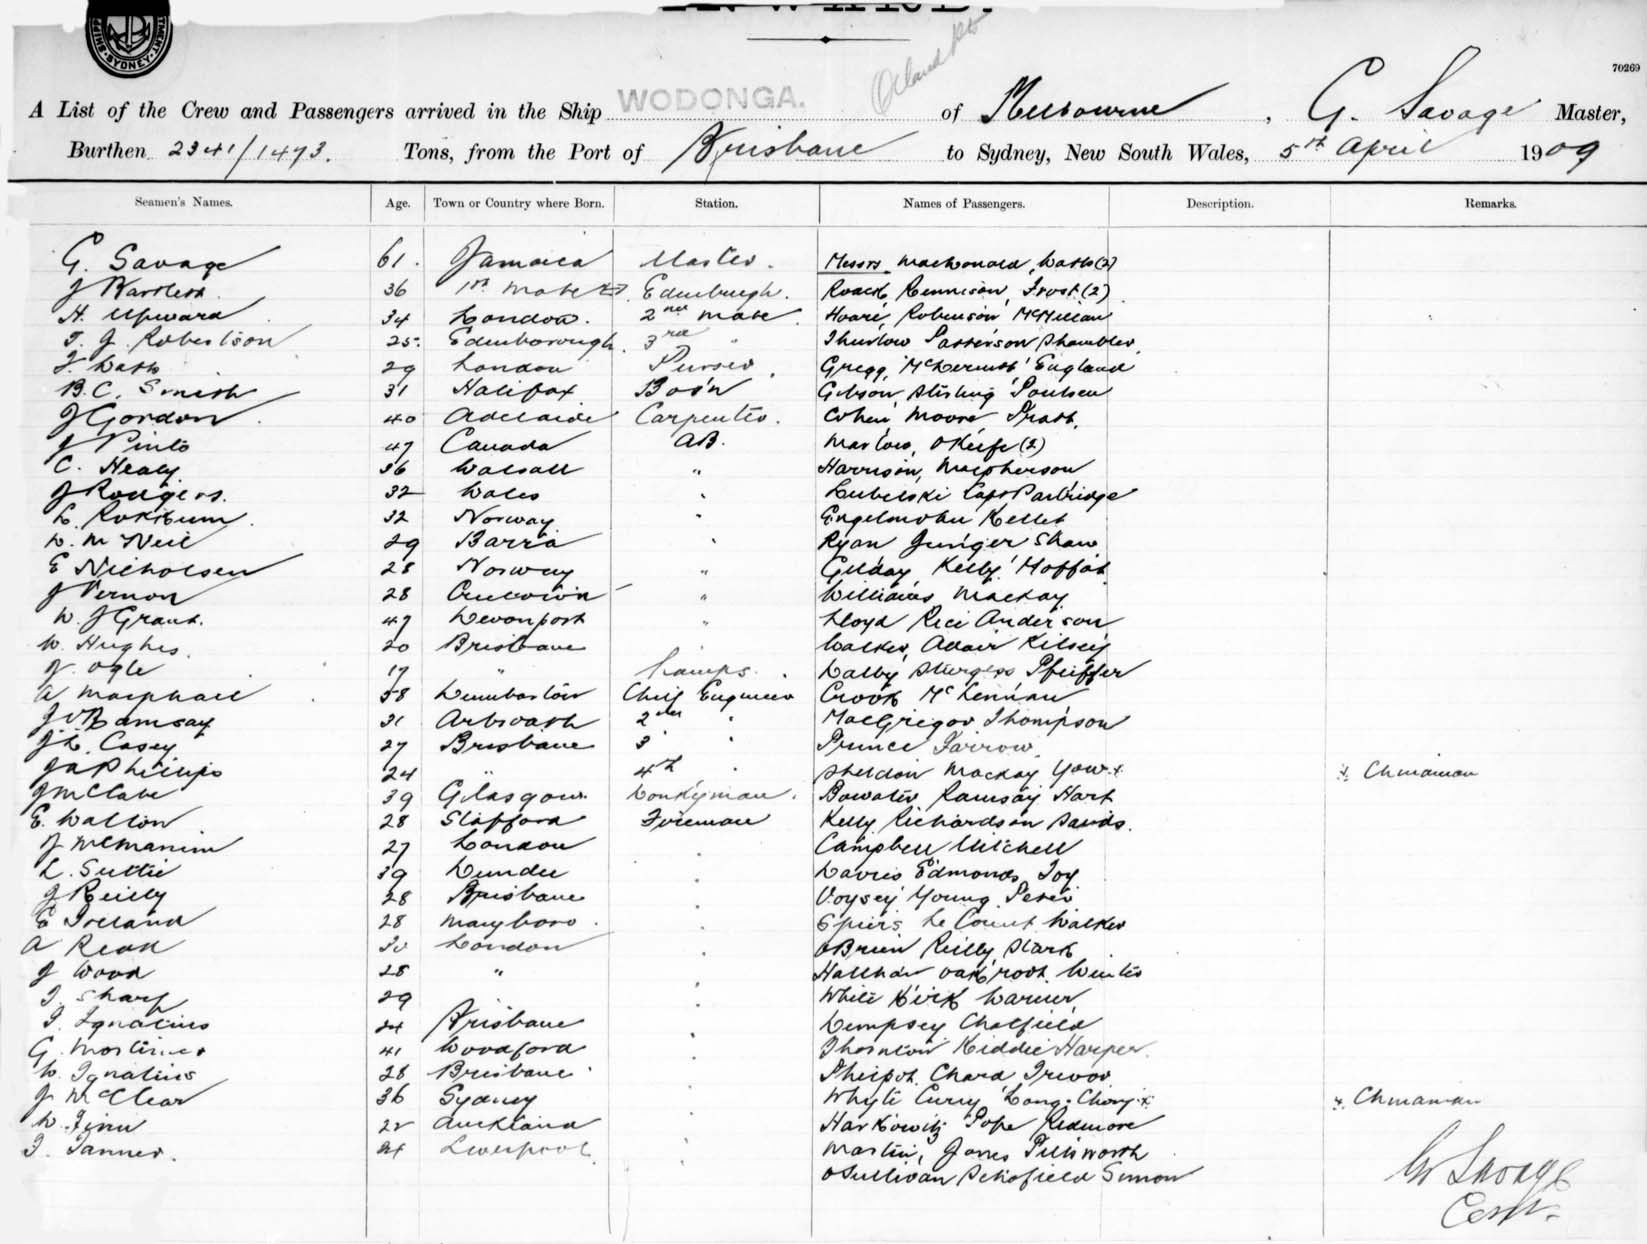 INWARD.
SYDNEY
70269
A List of the Crew and Passengers arrived in the Ship WODONGA. of Melbourne, G. Savage Master,
Burthen 2341/1473. Tons, from the Port of Brisbane to Sydney, New South Wales, 5th April 1909
Seamen's Names. Age. Town or Country where Born. Station. Names of Passengers. Description. Remarks.
G. Savage 61. Jamaica Master. Messrs. MacDonald, Watts (2)
J Bartlett 36 1st Mate Edinburgh. Roach, Rennison, Frost (2)
H. Upward 34 London. 2nd Mate Hoare, Robinson McMillan
T. J. Robertson 25. Edinborough 3rd " Thurlow Patterson
29 London Purser. Gregg, McDermott England
B. C. Smith 31 Halifax Bos'n Gibson, Stirling Poulsen
J Gordon 40 Adelaide Carpenter. Cohen Moore Pratt.
J Pinto 47 Canada AB. Marlow, OKeefe (2)
C. Healy 36 Walsall " Harrison, Macpherson
J Rodgers. 32 Wales " Lubelski Capt Partridge
32 Norway " Kellet
D. McNeil 29 Barra " Ryan Junger Shaw
E Nicholsen 28 Norway " Gilday Kelly Moffat
J Vernon 28 " Williams Mackay
W. J Grant. 47 Devonport " Lloyd Rice Anderson
W. Hughes. 20 Brisbane " Walker, Adair Kilsey
J. Ogle 17 " Lamps. Dalby Sturgess Pfeiffer
A Macphail 58 Dumbarton Chief Engineer Crook McLennan
J Ramsay 31 Arbroath 2nd " MacGregor Thompson
J. L. Casey 27 Brisbane 3 " Prince Farrow
J A Phillips 24 " 4th " Sheldon Mackay Yow x x. Chinaman
J McClabe 39 Glasgow Donkeyman. Bowater Ramsay Hart
E. Walton 28 Stafford Fireman Kelly Richardson Davids.
J McManim 27 London " Campbell Mitchell
L. Suttie 39 Dundee " Davies Edmonds Joy
J Reilly 28 Brisbane " Voysey Young Peter
E Ireland 28 Maryboro. " Spiers Le Count Walker
A Read 30 London " OBrien Reilly Stark
J Wood 28 " " Winter
T. Sharp 29 " White Kirk Warner
T. Ignatius 24 Brisbane " Dempsey Chatfield
G. Mortimer 41 Woodford " Thornton Kiddie Harper.
W. Ignatius 28 Brisbane " Philpot. Chard Trevor
J McClear 36 Sydney " Whyte Curry Long Chong x x. Chinaman
W. Finn 22 Auckland " Harkowitz Pope Redmore
T. Tanner. 24 Liverpool. " Martin, Jones Pillsworth
OSullivan Schofield Simon
G Savage